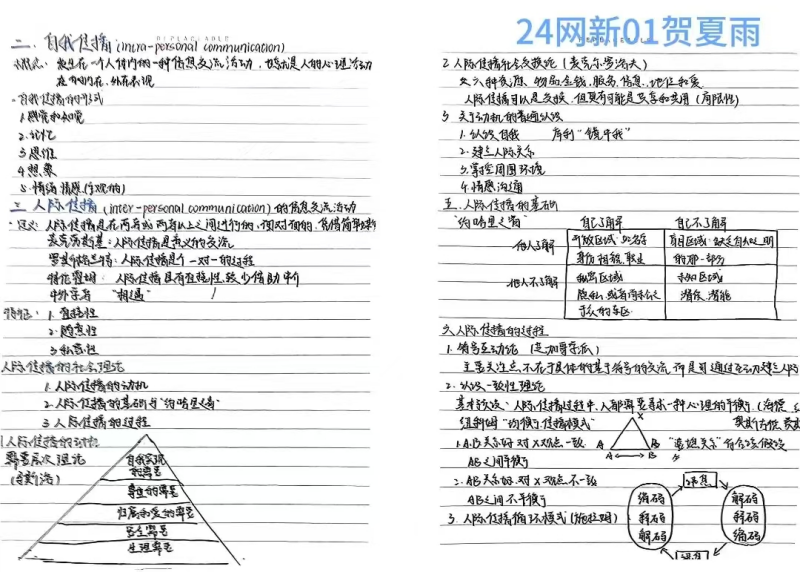 24网新01贺夏雨
二、自我传播 (intra-personal communication)
概念: 发生在一个人体内的一种信息交流活动, 也就是人的心理活动
在的内在、外在表现
自我传播的形式
1.感觉和知觉
2.记忆
3.思维
4.想象
5.情绪情感
三、人际传播 (inter-personal communication) 的信息交流活动
定义: 人际传播是在两者或两者以上之间进行的, 面对面的
人际传播是意义的交流
人际传播是个一对一的过程
人际传播具有直接性, 较少借助中介
"相遇"
特征: 1.直接性
2.随意性
3.私密性
人际传播的社会理论
1.人际传播的动机
2.人际传播的基础与"约哈里之窗"
3.人际传播的过程
1.人际传播的动论
需要层次理论
(马斯洛)
自我实现
的需要
尊重的需要
归属和爱的需要
安全需要
生理需要
2.人际传播社会交换论
六种资源: 物品金钱、服务、信息、地位和爱
人际传播可以是交换, 但更有可能是共享和共用 (局限性)
3.关于动机的普遍认识
1.认识自我 库利"镜中我"
2.建立人际关系
3.掌控周围环境
4.情感沟通
五、人际传播的基础
"约哈里之窗" 自己了解 自己不了解
他人了解 开放区域: 如名字 盲目区域: 缺乏自知之明
身份 相貌、职业 的那一部分
他人不了解 秘密区域 未知区域
隐私, 或者 潜质、潜能
禁区
六、人际传播的过程
1.符号互动论 (芝加哥学派)
主要关注点不在于具体的基于符号的交流, 而是可通过互动建立人际
2.认识一致性理论
基本假设: 人际传播过程中, 人都需要寻求一种心理的平衡 (海德
纽科姆"均衡传播模式"
X
A B
1.A、B关系好, 对X观点一致
AB之间平衡
2.AB关系好, 对X观点不一致
AB之间不平衡
3.人际传播循环模式 (施拉姆)
讯息
编码 解码
释码 释码
解码 编码
讯息